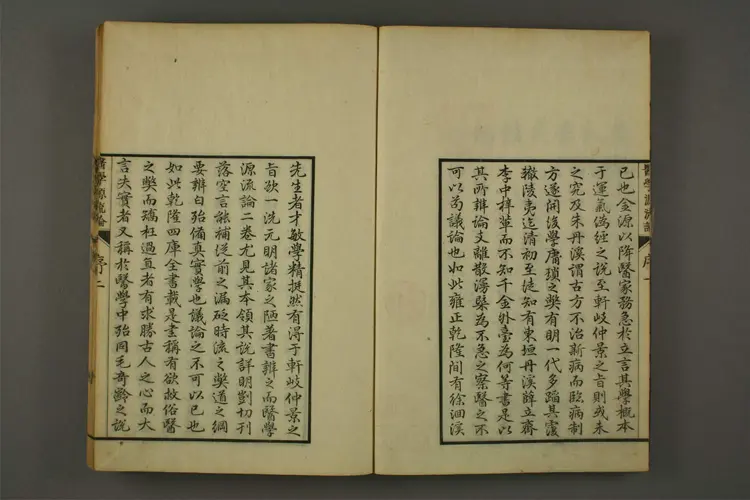 醫學源流論
序一
已也金源以降醫家務急於立言其學概本
于運氣偽經之說至軒岐仲景之旨則或未
之究及朱丹溪謂古方不治新病而臨病制
方遂開後學庸瑣之獘有明一代多蹈其覆
轍陵夷迄清初至徒知有東垣丹溪薛立齋
李中梓輩而不知千金外臺為何等書是以
其所辯論支離散漫槩為不急之察醫之不
可以苟議論也如此雍正乾隆間有徐洄溪
先生者才敏學精挺然有得于軒岐仲景之
旨欲一洗元明諸家之陋著書辯之而醫學
源流論二卷尤見其本領其說詳明剴切刊
落空言能補從前之漏砭時流之獘道之綱
要辯白殆備真實學也議論之不可以已也
如此乾隆四庫全書載是書稱有欲救俗醫
之獘而矯枉過直者有求勝古人之心而大
言夫實者又稱於醫學中殆同毛奇齡之說
醫學源流論
序二